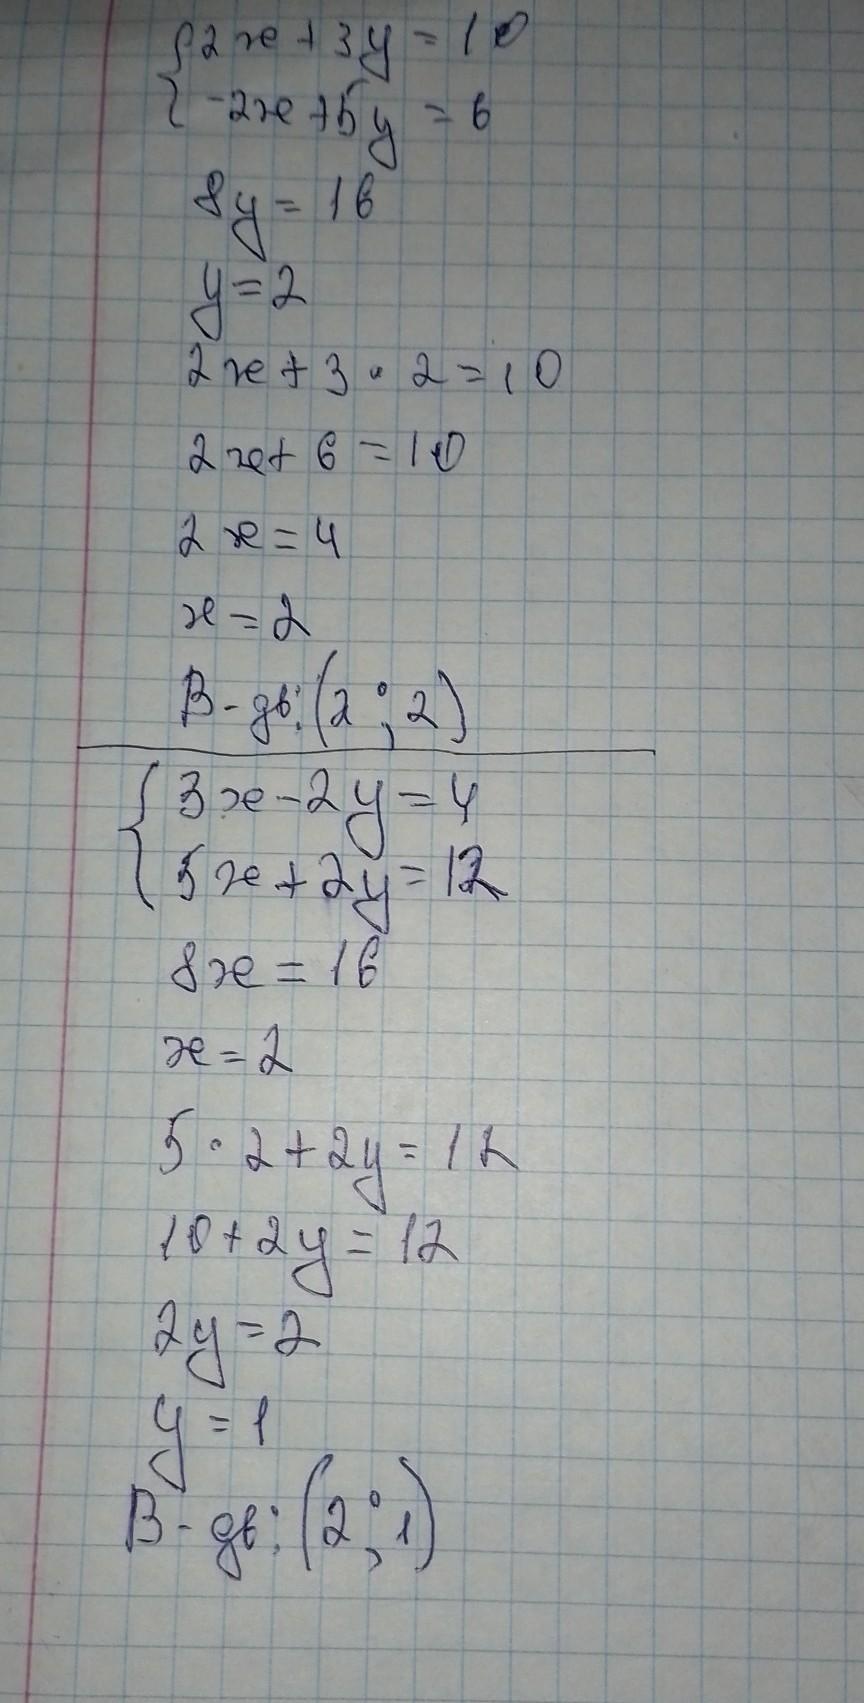 {2x + 3y = 10
{-2x + 5y = 6
8y = 16
y = 2
2x + 3 · 2 = 10
2x + 6 = 10
2x = 4
x = 2
В-дь: (2 ; 2)
{3x - 2y = 4
5x + 2y = 12
8x = 16
x = 2
5 · 2 + 2y = 12
10 + 2y = 12
2y = 2
y = 1
В-дь: (2 ; 1)